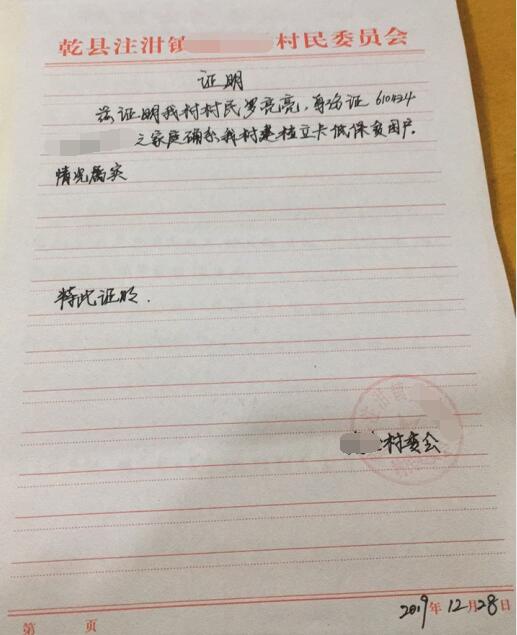 乾县注泔镇 村民委员会
证明
兹证明我村村民罗亮亮，身份证 610424
之家庭确系我村建档立卡低保贫困户.
情况属实
特此证明.
注泔镇
村委会
2019年12月28日
第 页